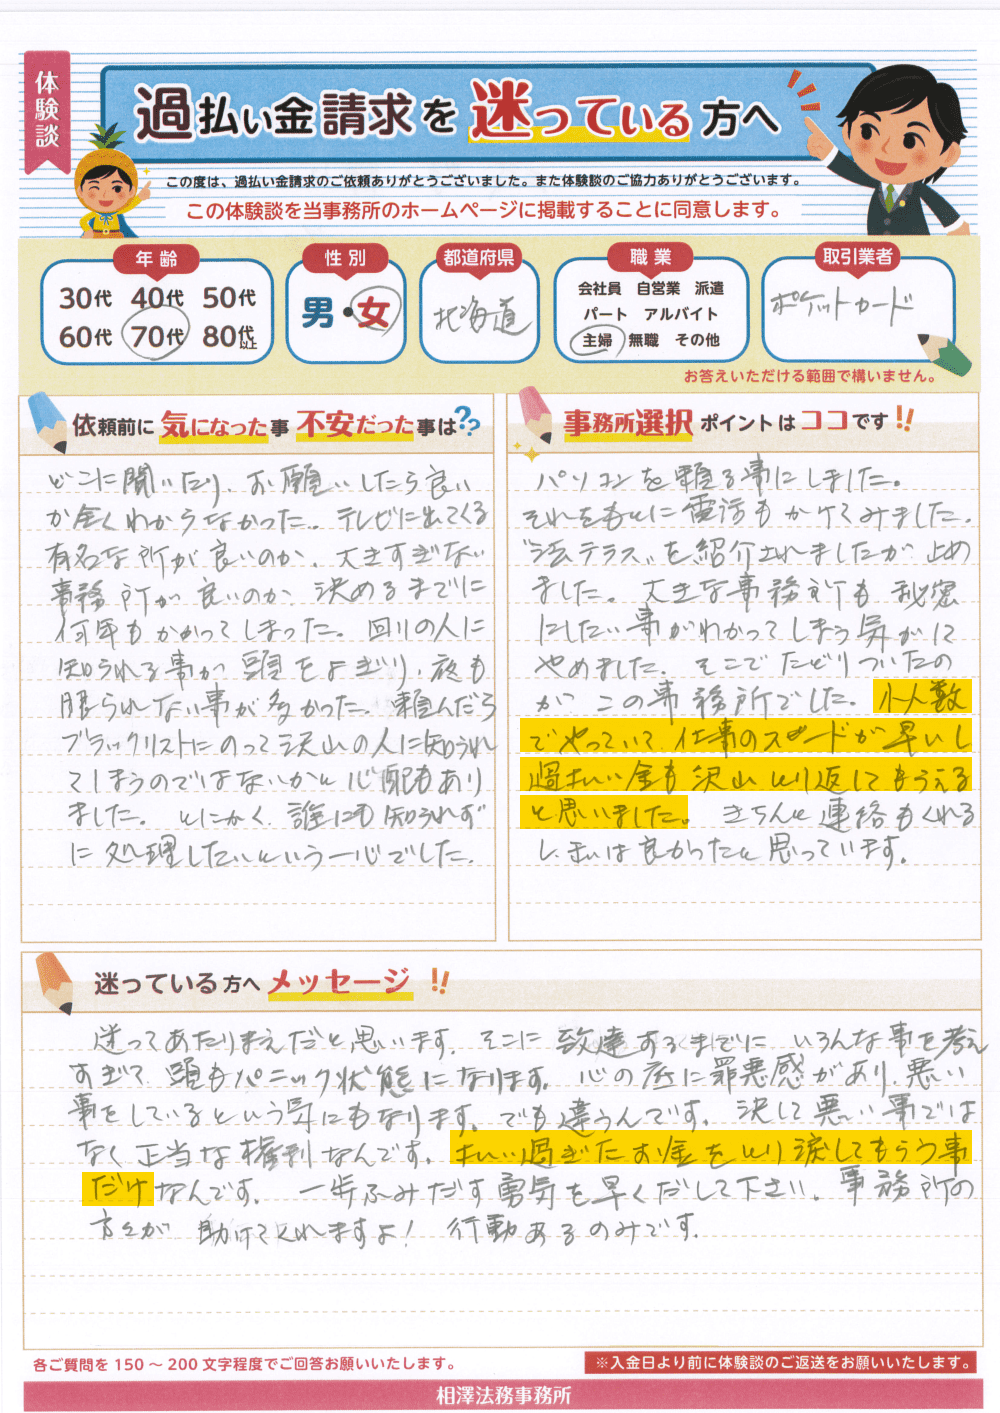 体験談
過払い金請求を迷っている方へ
この度は、過払い金請求のご依頼ありがとうございました。また体験談のご協力ありがとうございます。
この体験談を当事務所のホームページに掲載することに同意します。
年齢
30代 40代 50代
60代 70代 80代以上
性別
男・女
都道府県
北海道
職業
会社員 自営業 派遣
パート アルバイト
主婦 無職 その他
取引業者
ポケットカード
お答えいただける範囲で構いません。
依頼前に気になった事 不安だった事は??
どこに聞いたり、お願いしたら良い
か全くわからなかった。テレビに出てくる
有名な所が良いのか、大きすぎない
事務所が良いのか、決めるまでに
何年もかかってしまった。回りの人に
知られる事が頭をよぎり、夜も
眠られない事が多かった。頼んだら
ブラックリストにのって沢山の人に知られ
てしまうのではないかと心配もあり
ました。とにかく、誰にも知られずに
に処理したいという一心でした。
事務所選択ポイントはココです!!
パソコンを頼る事にしました。
それをもとに電話もかけてみました。
“法テラス”を紹介されましたが止め
ました。大きな事務所も秘密
にしたい事がわかってしまう気がして
やめました。そこでたどりついたの
が、この事務所でした。小人数
でやっていて、仕事のスピードが早いし
過払い金も沢山とり返してもらえる
と思いました。きちんと連絡もくれる
し、まずは良かったと思っています。
迷っている方へメッセージ!!
迷ってあたりまえだと思います。そこに致達するまでに、いろんな事を考え
すぎて、頭もパニック状態になります。心の底に罪悪感があり、悪い
事をしているという気にもなります。でも違うんです。決して悪い事では
なく正当な権利なんです。払い過ぎたお金をとり戻してもらう事
だけなんです。一歩ふみだす勇気を早くだして下さい。事務所の
方々が助けてくれますよ!行動あるのみです。
各ご質問を150～200文字程度でご回答お願いいたします。
※入金日より前に体験談のご返送をお願いいたします。
相澤法務事務所